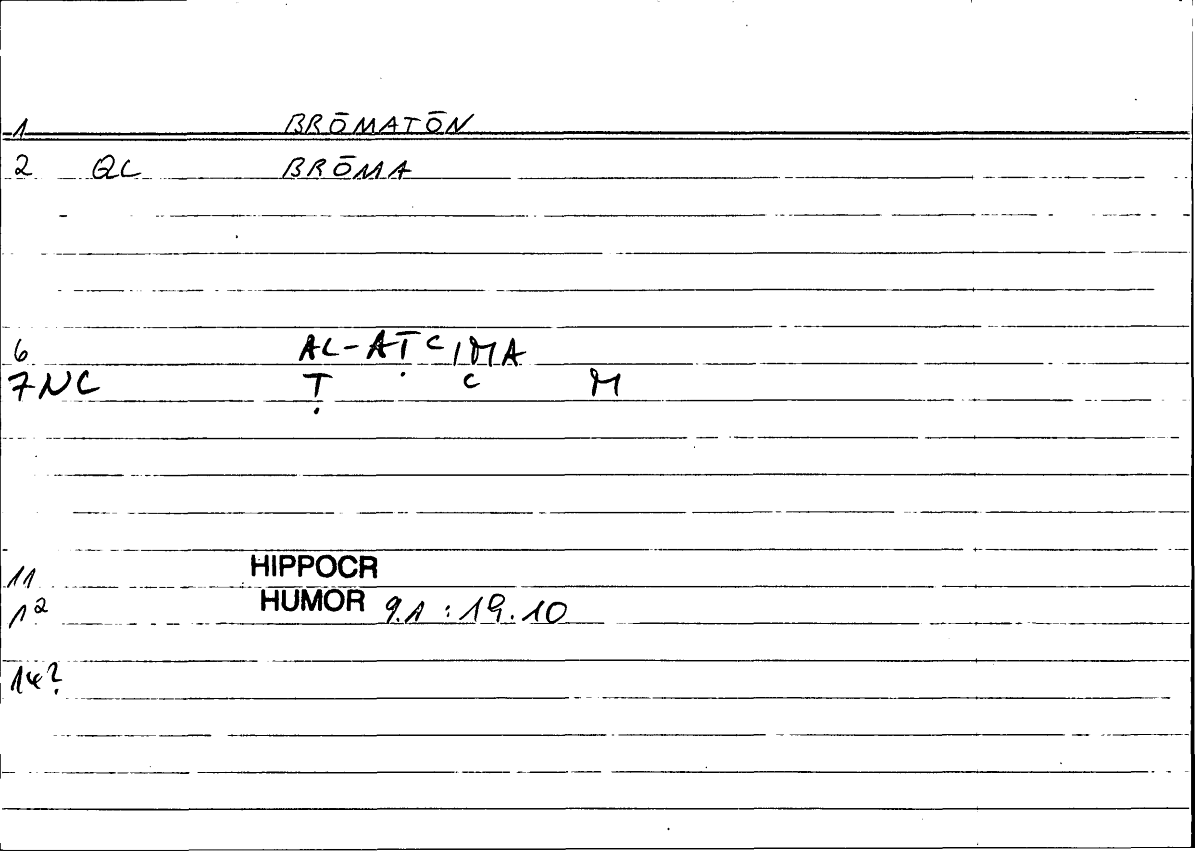 1 BRŌMATŌN
2 QC BRŌMA
6 AL-AṬʿIMA
7 NC Ṭ ʿ M
11 HIPPOCR
12 HUMOR 9.1 : 19.10
14?